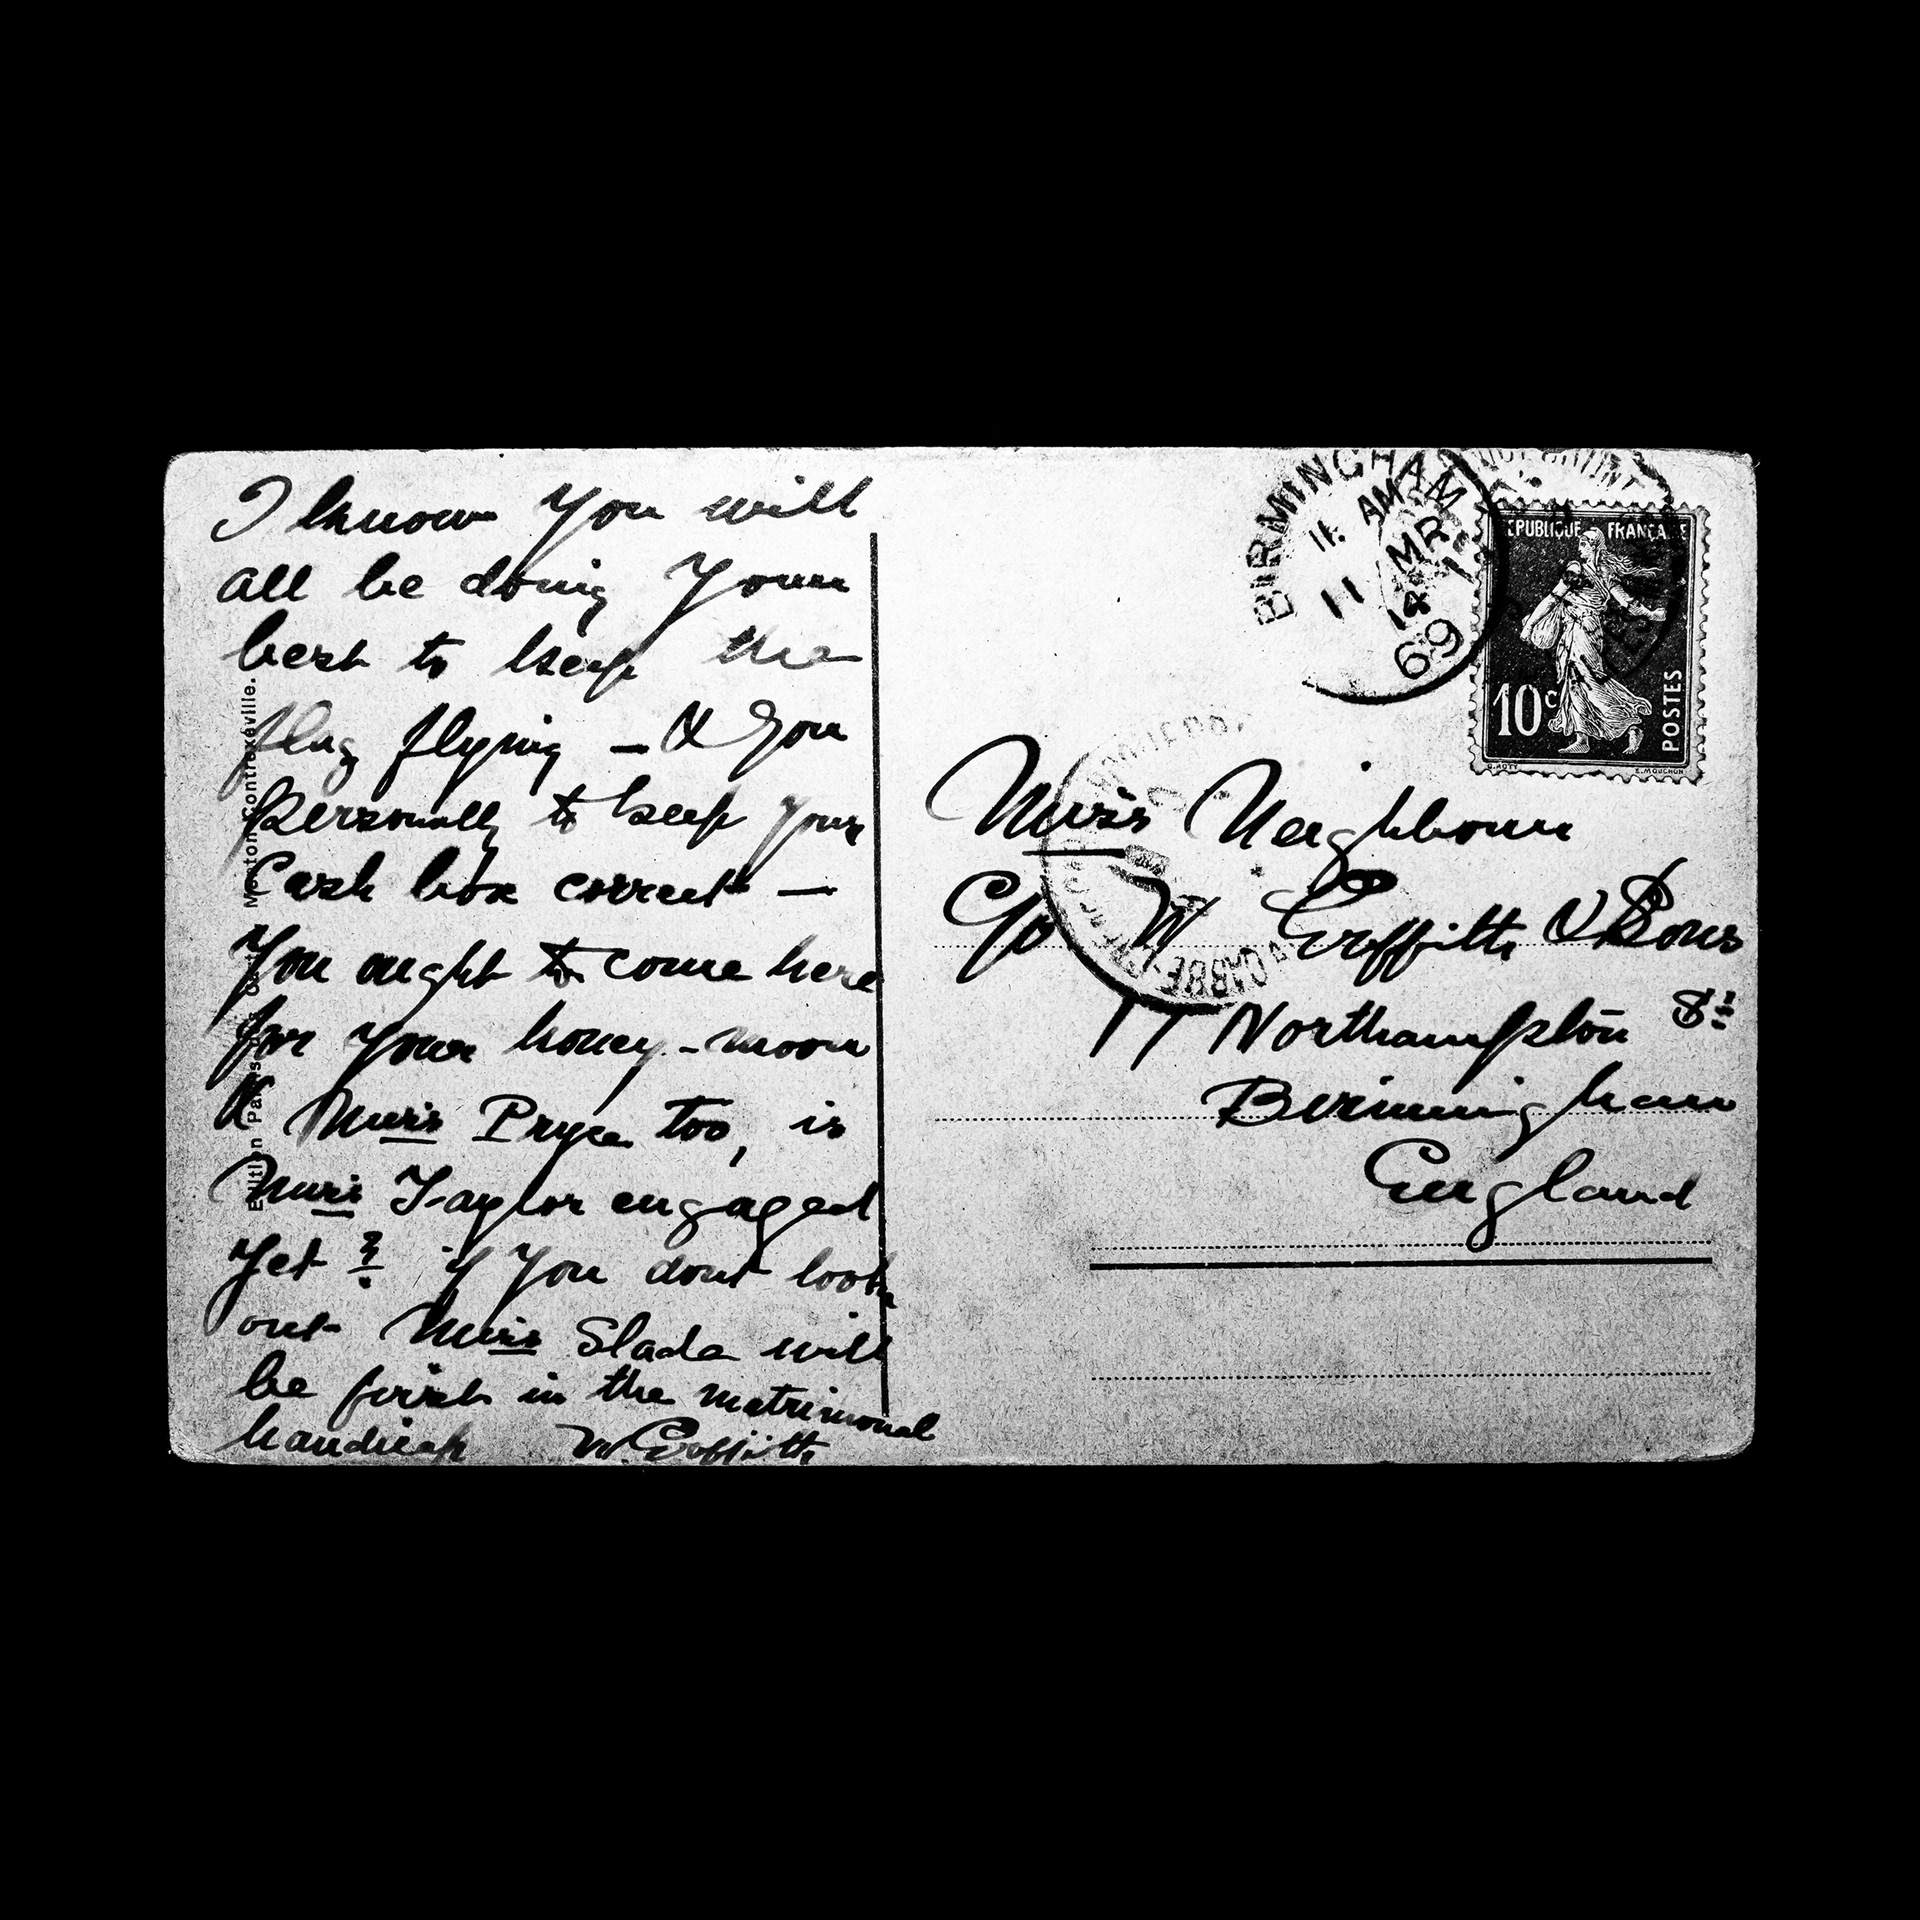 I know you will
all be doing your
best to keep the
flag flying - & you
personally to keep your
Cash box correct -
You ought to come here
for your honey-moon
& Miss Pryce too, is
Miss Taylor engaged
yet ? if you dont look
out Miss Slade will
be first in the matrimonal
handicap W. Griffith
Edition Monton Contrexéville.
BIRMINGHAM
11 AM
11 MR
14
69
RÉPUBLIQUE FRANÇAISE
10c
POSTES
O. ROTY E. MOUCHON
Miss Neighbour
C/o W Griffith & Sons
Northampton St
Birmingham
England